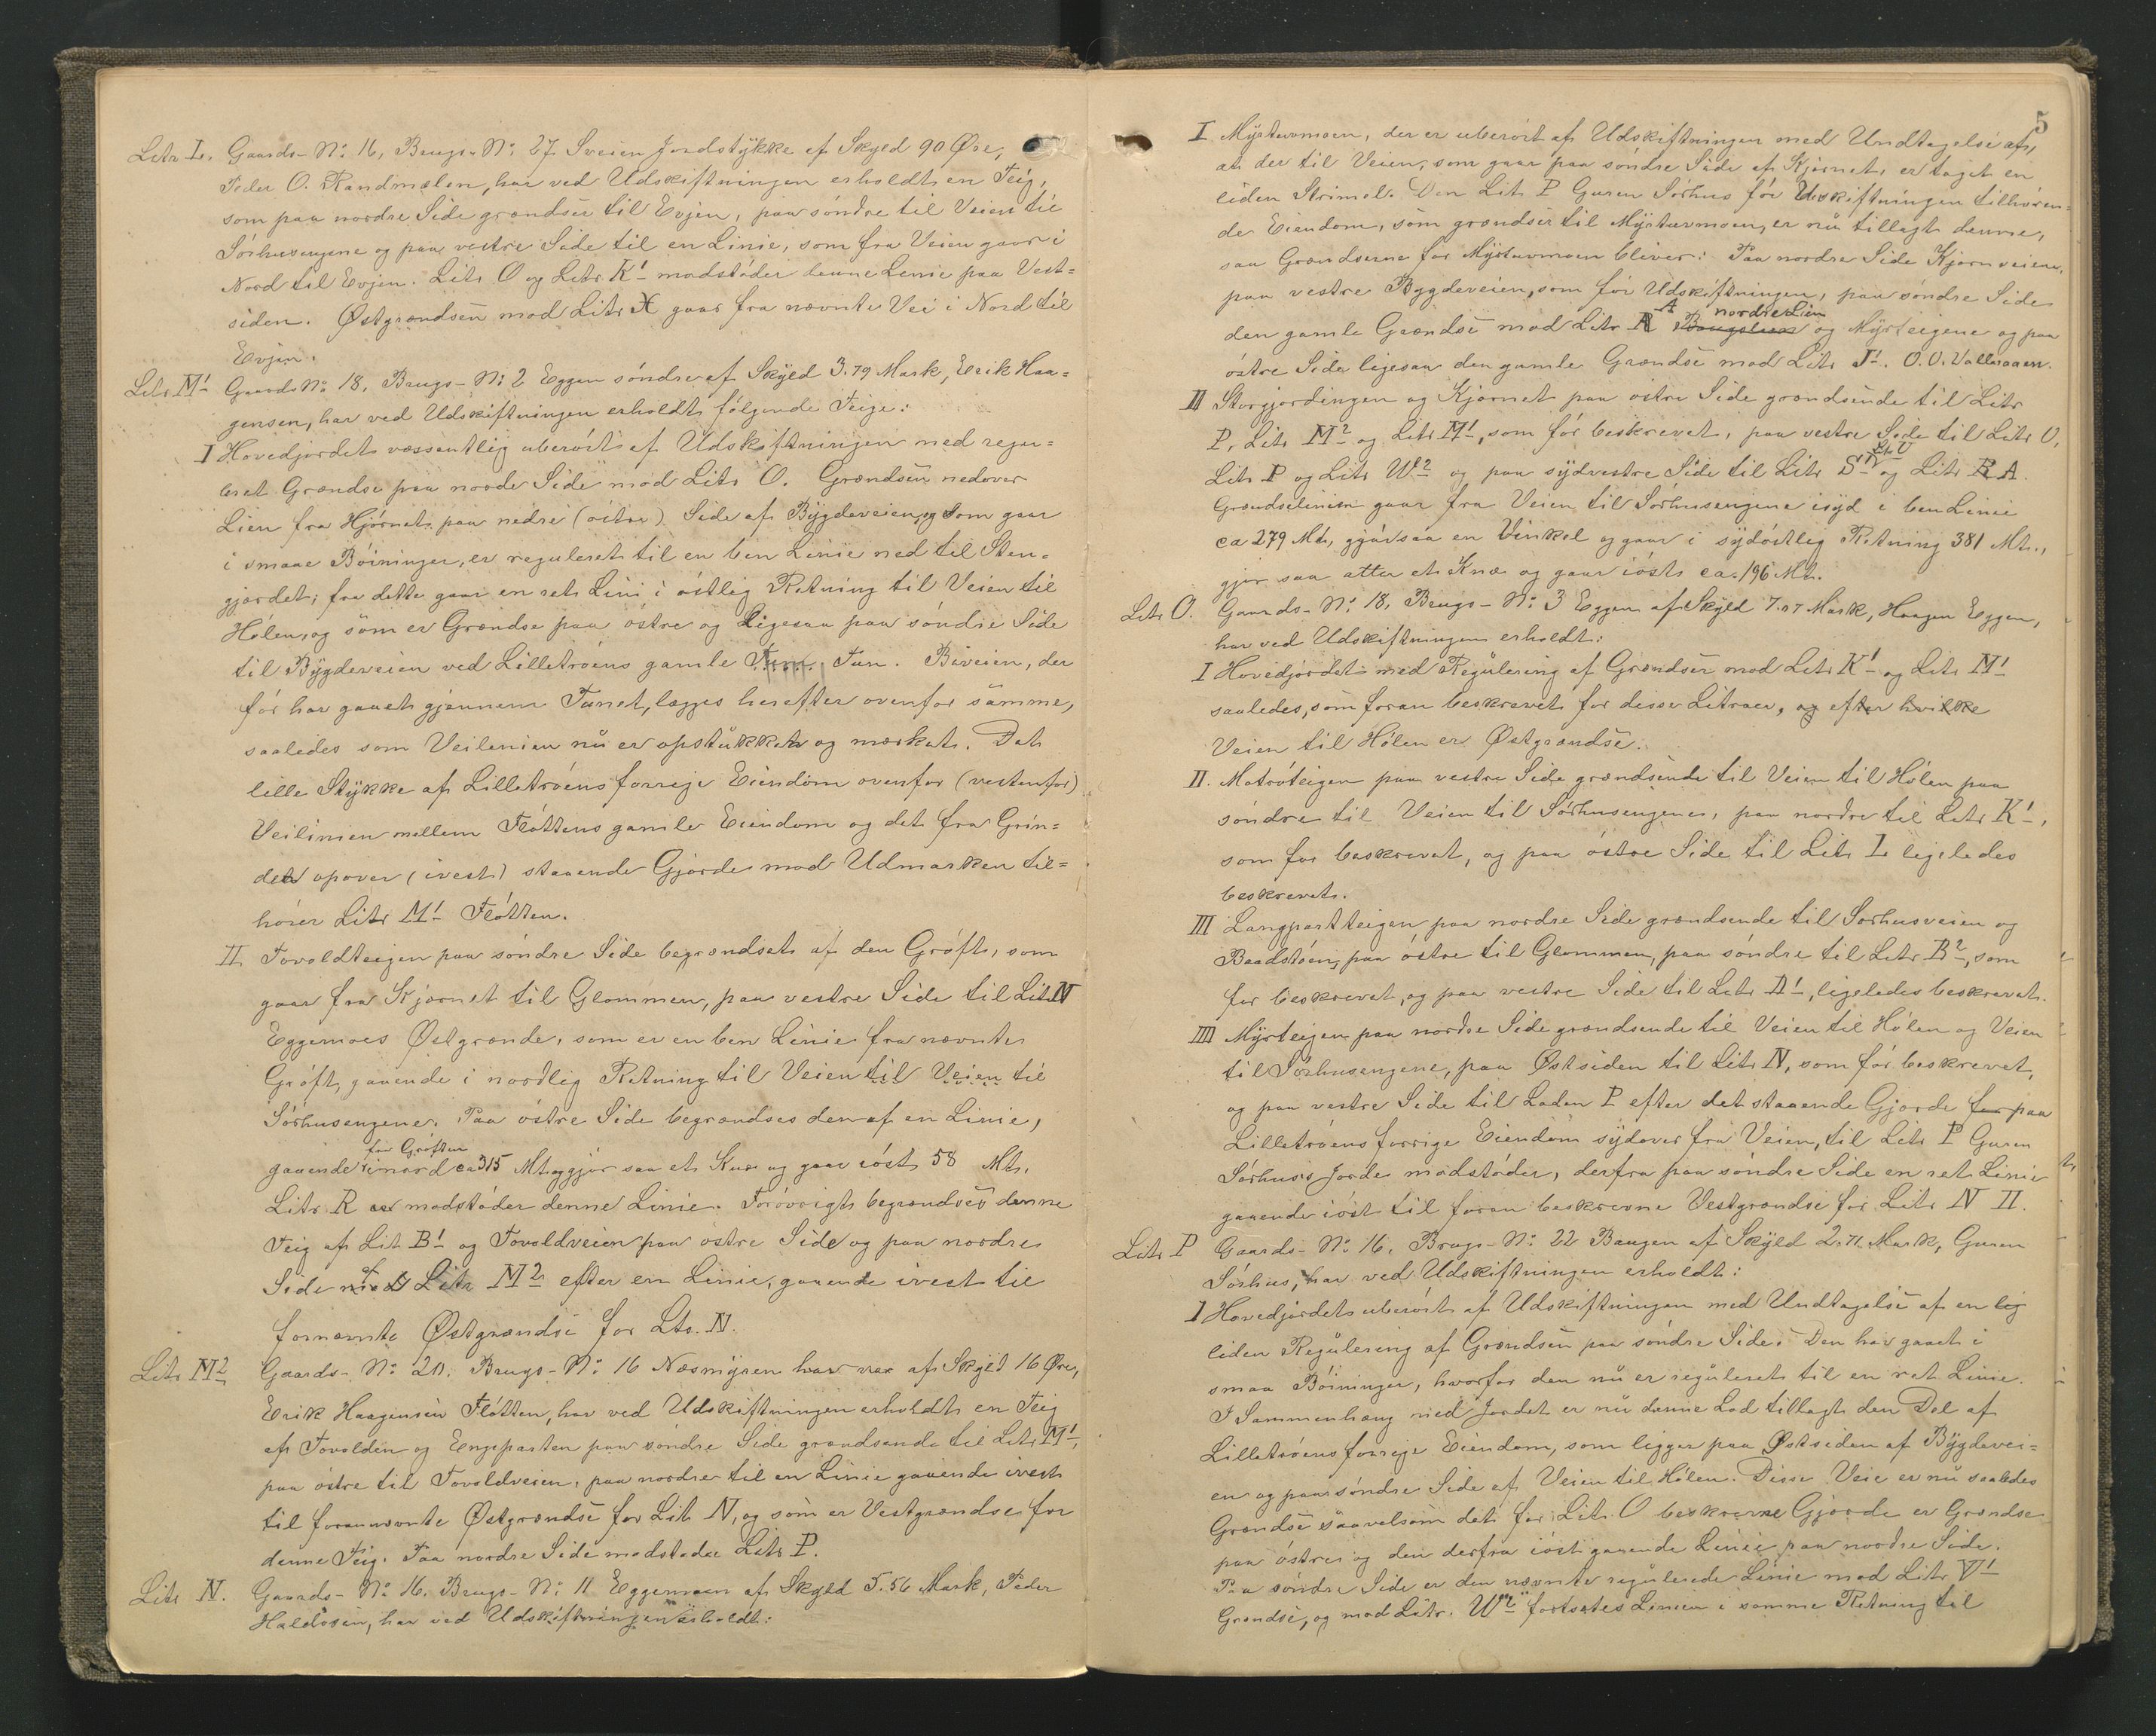 Litr. L. Gaards-No: 16, Brugs-No: 27 Sveien Jordstÿkke af Skyld 90 Øre,
Peder O. Randmælen, har ved Udskiftningen erholdt en Teig,
som paa nordre Side grændser til Evjen, paa søndre til Veien til
Sørhusengene og paa vestre Side til en Linie, som fra Veien gaar i
Nord til Evjen. Litr. O og Litr. K1 modstøder denne Linie paa Vest=
siden. Østgrændsen mod Litr. X gaar fra nævnte Vei i Nord til
Evjen.
Litr. M1 Gaards No: 18, Brugs-No: 2 Eggen søndre af Skÿld 3.79 Mark, Erik Haa=
gensen, har ved Udskiftningen erholdt følgende Teige:
I Hovedjordet væssentlig uberørt af Udskiftningen med regu=
leret Grændse paa nordre Side mod Litr. O. Grændsen nedover
Lien fra Hjørnet paa nedre (østre) Side af Bÿgdeveien, og som gaar
i smaae Bøininger, er reguleret til en ben Linie ned til Sten=
gjærdet; fra dette gaar en ret Linie i østlig Retning til Veien til
Hølen, og som er Grændse paa østre og ligesaa paa søndre Side
til Bÿgdeveien ved Lilletrøens gamle Tun. Tun. Biveien, der
før har gaaet gjennem Tunet, lægges herefter ovenfor samme,
saaledes som Veilinien nu er opstukket og mærket. Det
lille Stÿkke af Lilletrøens forrige Eiendom ovenfor (vestenfor)
Veilinien mellem Fløttens gamle Eiendom og det fra Grin=
det opover (ivest) staaende Gjærde mod Udmarken til=
hører Litr. M1 Fløtten.
II. Tovoldteigen paa søndre Side begrændset af den Grøft, som
gaar fra Kjørnet til Glommen, paa vestre Side til Litr. N
Eggemoes Østgrænde, som er en ben Linie fra nævnte
Grøft, gaaende i nordlig Retning til Veien til Veien til
Sørhusengene. Paa østre Side begrændses den af en Linie,
fra Grøften
gaaende i nord ca 315 Mt. og gjør saa et Knæ og gaar iøst 58 Mt.
Litr. R er modstøder denne Linie. Forøvrigt begrændses denne
Teig af Lit B1 og Tovoldveien paa østre Side og paa nordre
Side mod af Litr M2 efter en Linie, gaaende ivest til
fornævnte Østgrændse for Ltr. N.
Litr. M2 Gaards-No: 20. Brugs-No: 16 Næsmÿren af Skÿld 16 Øre,
Erik Haagensen Fløtten, har ved Udskiftningen erholdt en Teig
af Tovolden og Engeparten paa søndre Side grændsende til Litr. M1,
paa østre til Tovoldveien, paa nordre til en Linie gaaende ivest
til forannævnte Østgrændse for Lit. N, og som er Vestgrændse for
denne Teig. Paa nordre Side modstøder Litr. P.
Litr. N. Gaards-No: 16. Brugs-No: 11 Eggemoen af Skÿld 5.56 Mark, Peder
Haldosen, har ved Udskiftningen erholdt:
5
I Mÿrtuvmoen, der er uberørt af Udskiftningen med Undtagelse af,
at der til Veien, som gaar paa søndre Side af Kjørnet, er taget en
liden Strimel. Den Lit. P Guren Sørhus før Udskiftningen tilhøren=
de Eiendom, som grændser til Mÿrtuvmoen, er nu tillagt denne,
saa Grændserne for Mÿrtuvmoen bliver: Paa nordre Side Kjørnveien,
paa vestre Bygdeveien, som før Udskiftningen, paa søndre Side
A nordre Lien
den gamle Grændse mod Litr. R og Mÿrteigene og paa
østre Side ligesaa den gamle Grændse mod Litr. J1. O. O. Vallmoaen.
II Storgjordingen og Kjørnet paa østre Side grændsende til Litr
P, Litr. M2 og Litr. M1, som før beskrevet, paa vestre Side til Litr. O,
Litr. U
Litr. P og Litr. W2 og paa sydvestre Side til Litr. S1 og Litr. R A.
Grændselinien gaar fra Veien til Sørhusengene isÿd i ben Linie
ca 279 Mt., gjør saa en Vinkel og gaar i sydøstlig Retning 381 Mt.,
gjør saa atter et Knæ og gaar iøst ca. 196 Mt.
Litr. O. Gaards-No: 18, Brugs-No: 3 Eggen af Skÿld 7.07 Mark, Haagen Eggen,
har ved Udskiftningen erholdt:
I Hovedjordet med Regulering af Grændser mod Litr. K1 og Litr. M1
saaledes, som foran beskrevet for disse Litraer, og efter hvilke
Veien til Hølen er Østgrændse.
II. Motrøteigen paa vestre Side grændsende til Veien til Hølen paa
søndre til Veien til Sørhusengenes, paa nordre til Litr. K1,
som før beskrevet, og paa østre Side til Litr. L ligeledes
beskrevet.
III Langpartteigen paa nordre Side grændsende til Sørhusveien og
Baadstøen, paa østre til Glommen, paa søndre til Litr. B2, som
før beskrevet, og paa vestre Side til Litr. A1, ligeledes beskrevet.
IIII Mÿrteigen paa nordre Side grændsende til Veien til Hølen og Veien
til Sørhusengene, paa Østsiden til Litr. N, som før beskrevet,
og paa vestre Side til Loden P efter det staaende Gjærde for paa
Lilletrøens forrige Eiendom sÿdover fra Veien, til Litr P Guren
Sørhus's Jorde modstøder, derfra paa søndre Side en ret Linie
gaaende iøst til foran beskrevne Vestgrændse for Litr. N II.
Litr. P Gaards-No: 16, Brugs-No: 22 Baugen af Skÿld 2.71 Mark, Guren
Sørhus, har ved Udskiftningen erholdt:
I Hovedjordet uberørt af Udskiftningen med Undtagelse af en lig
liden Regulering af Grændsen paa søndre Side. Den har gaaet i
smaa Bøininger, hvorfor den nu er reguleret til en ret Linie.
I Sammenhæng med Jordet er nu denne Lod tillagt den Del af
Lilletrøens forrige Eiendom, som ligger paa Østsiden af Bÿgdevei=
en og paa søndre Side af Veien til Hølen. Disse Veie er nu saaledes
Grændse saavelsom det for Litr. O beskrevne Gjærde er Grændse
paa østre og den derfra iøst gaaende Linie paa nordre Side.
Paa søndre Side er den nævnte regulerede Linie mod Litr. V1
Grændse, og mod Litr. W2 fortsættes Linien i samme Retning til